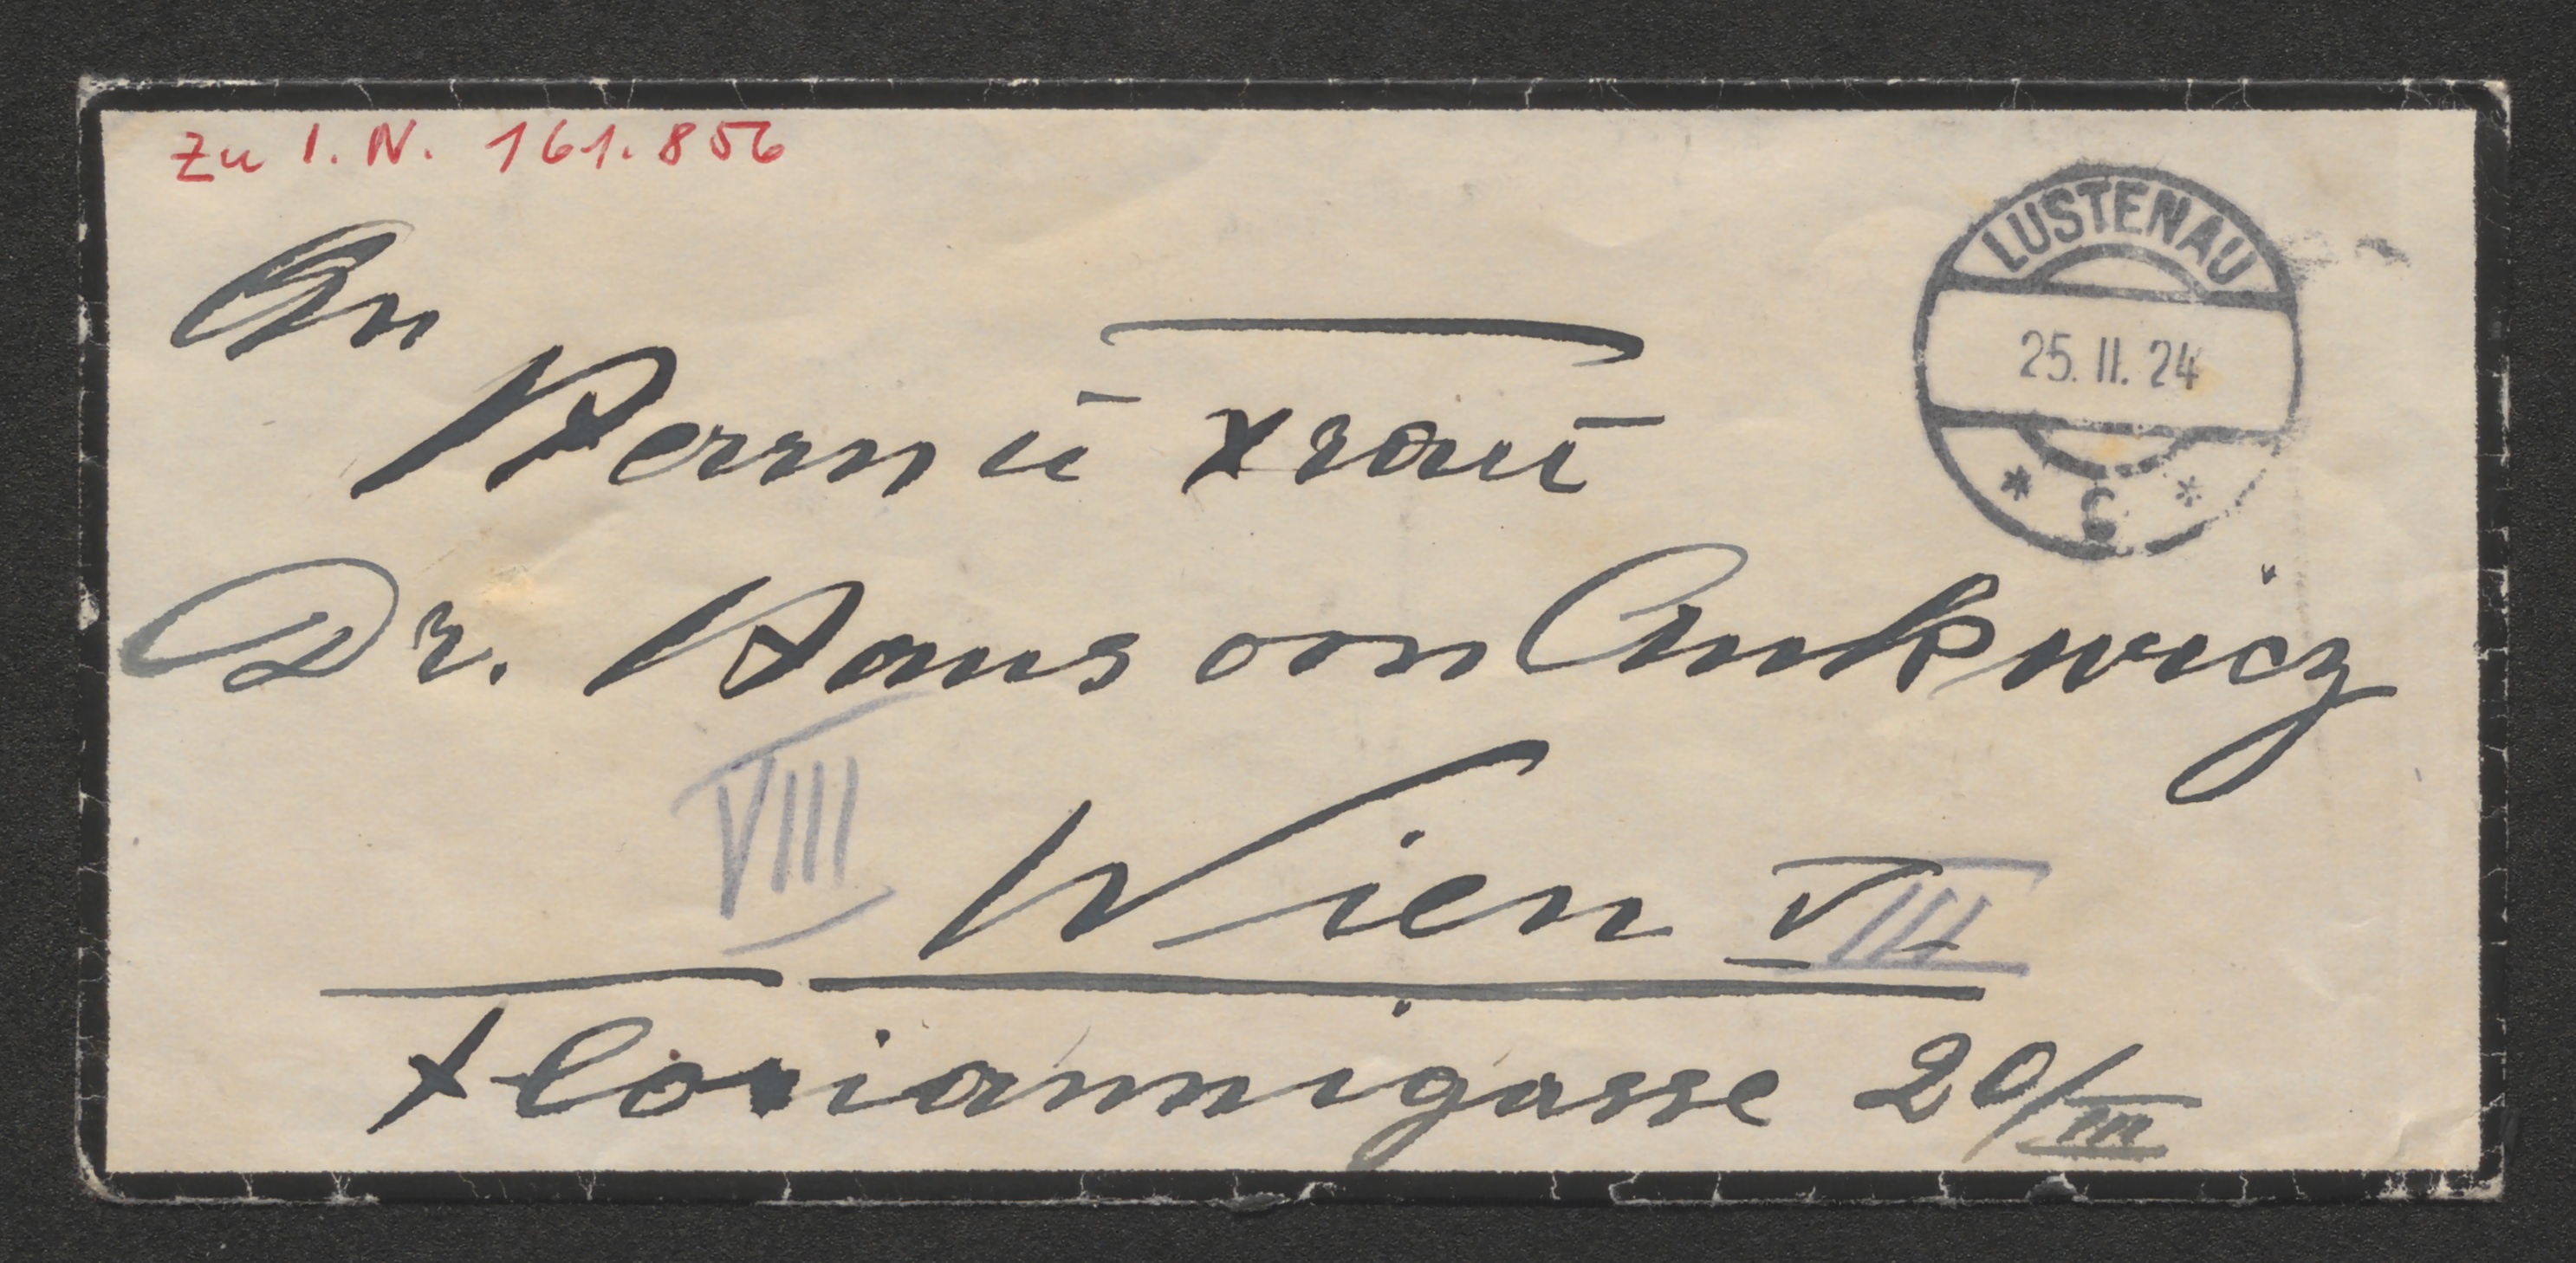 Zu I. N. 161.856
LUSTENAU
25. II. 24
* c *
An
Herrn ū Frau
Dr. Hans von Ankwicz
VIII
Wien VIII
Floriannigasse 20/III